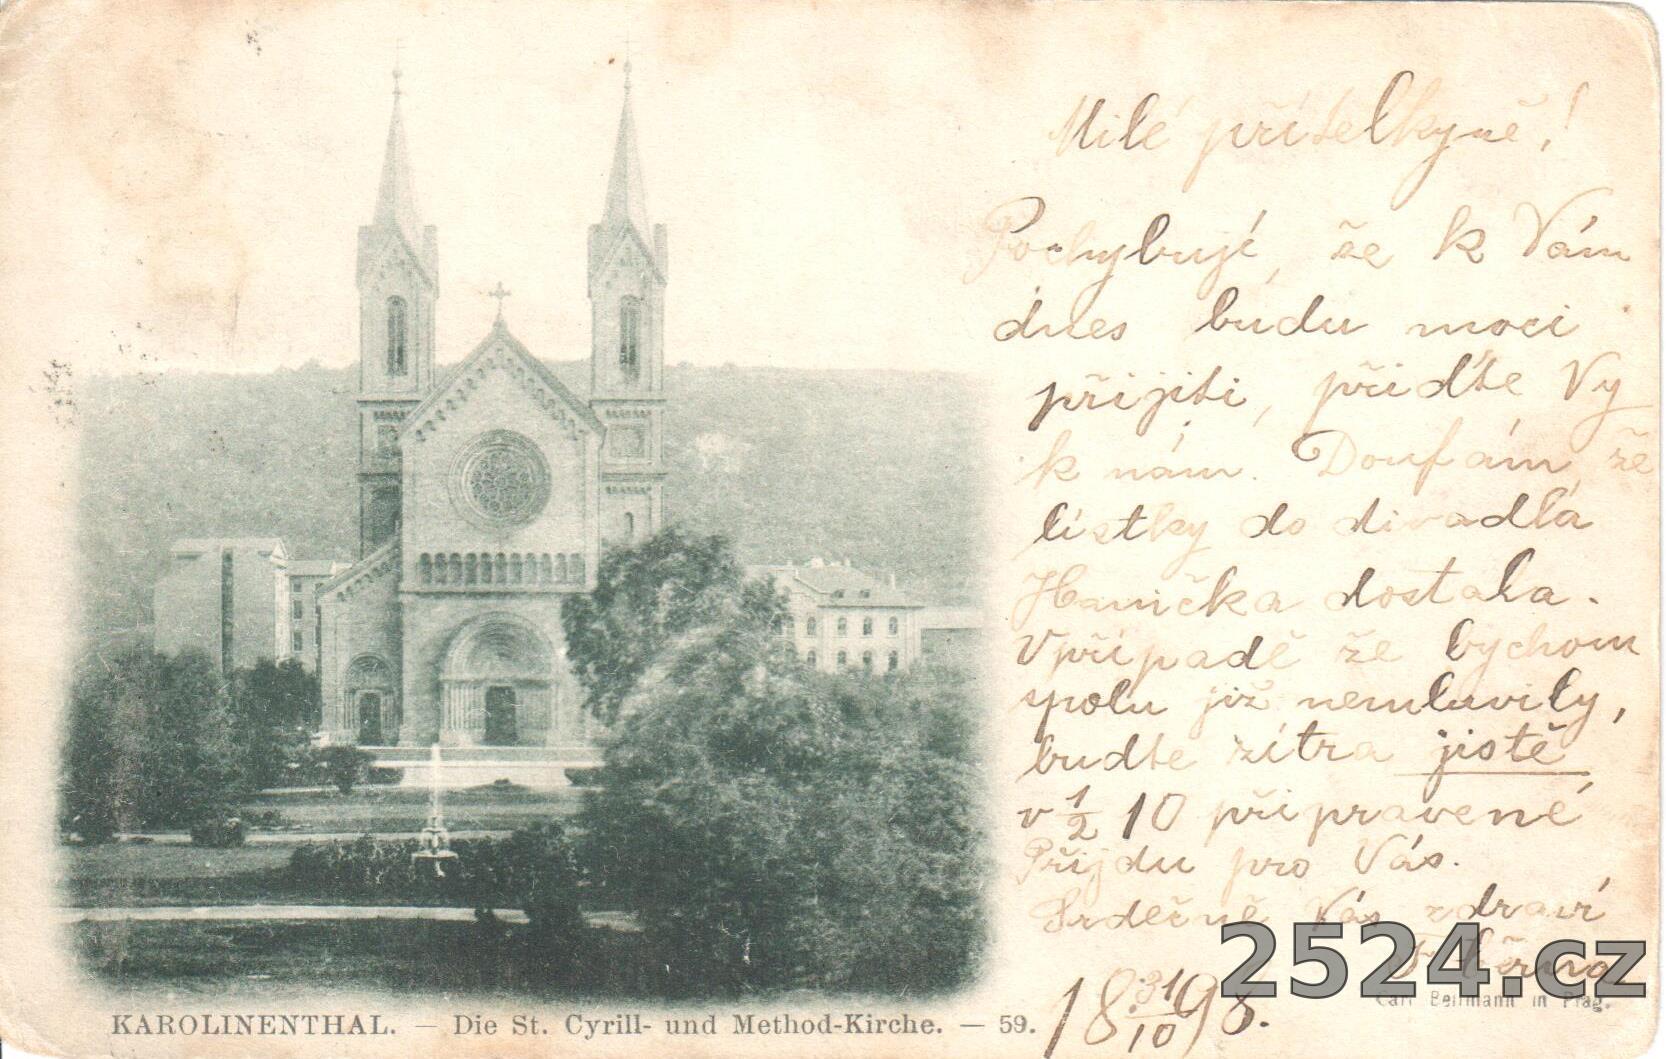 Milé přítelkyně!
Pochybuji, že k Vám
dnes budu moci
přijíti, přiďte Vy
k nám. Doufám, že
lístky do divadla
Hanička dostala.
V případě že bychom
spolu již nemluvily,
buďte zítra jistě
v 1/2 10 připravené
Přijdu pro Vás.
Srdečně Vás zdraví
18 31/10 98.
2524.cz
Carl Bellmann in Prag.
KAROLINENTHAL. — Die St. Cyrill- und Method-Kirche. — 59.